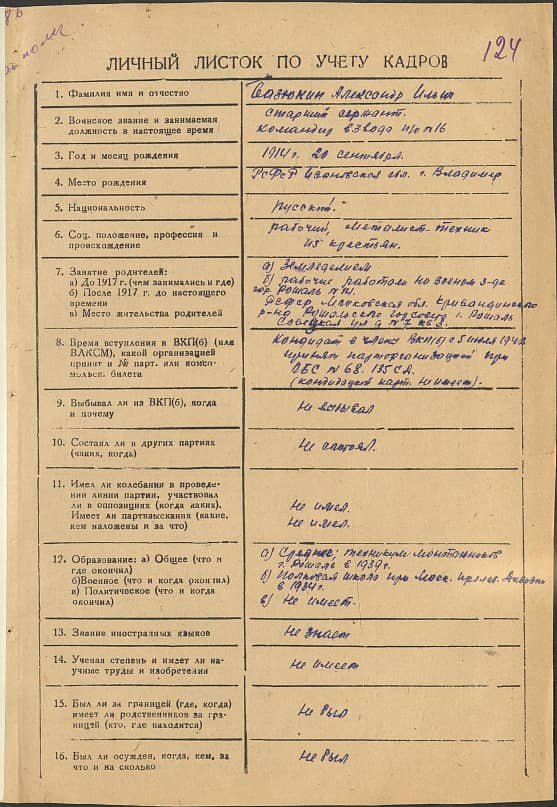 124
ЛИЧНЫЙ ЛИСТОК ПО УЧЕТУ КАДРОВ
1. Фамилия имя и отчество
Александр Ильич
2. Воинское звание и занимаемая
должность в настоящее время
старший сержант.
командир взвода п/о №16
3. Год и месяц рождения
1914 г. 20 сентября.
4. Место рождения
РСФСР Ивановская обл. г. Владимир
5. Национальность
русский.
6. Соц. положение, профессия и
происхождение
рабочий, металист-техник
из крестьян.
7. Занятие родителей:
а) До 1917 г. (чем занимались и где)
б) После 1917 г. до настоящего
времени
в) Место жительства родителей
а) Земледелием
б) рабочие работали на военом з-де
гор. Рошаль №14.
РСФСР Московская обл. Кривандинского
р-на Рошальского гор. совет г. Рошаль
Советская ул д №7 кв 3.
8. Время вступления в ВКП(б) (или
ВЛКСМ), какой организацией
принят и № парт. или комсо-
мольск. билета
Кандидат в члены ВКП(б) с 5 июля 1942
принят парторганизацией при
ОБС №68. 135 СД.
(кандидатск карт. Не имеет).
9. Выбывал ли из ВКП(б), когда
и почему
Не выбывал
10. Состаял ли в других партиях
(каких, когда)
Не состоял.
11. Имел ли колебания в проведе-
нии линии партии, участвовал
ли в оппозициях (когда каких).
Имеет ли партвзыскания (какие,
кем наложены и за что)
Не имел.
Не имел.
12. Образование: а) Общее (что и
где окончил)
б)Военное (что и когда окончил)
в) Политическое (что и когда
окончил)
а) Среднее; техникум
г. Рошаль в 1939 г.
б) Полковая школа при Моск. пролет. дивизии
в 1934 г.
в) Не имеет.
13. Знание иностранных языков
Не знает
14. Ученая степень и имеет ли на-
учные труды и изобретения
Не имеет
15. Был ли за границей (где, когда)
имеет ли родственников за гра-
ницей (кто, где находится)
Не был
16. Был ли осужден, когда, кем, за
что и на сколько
Не был